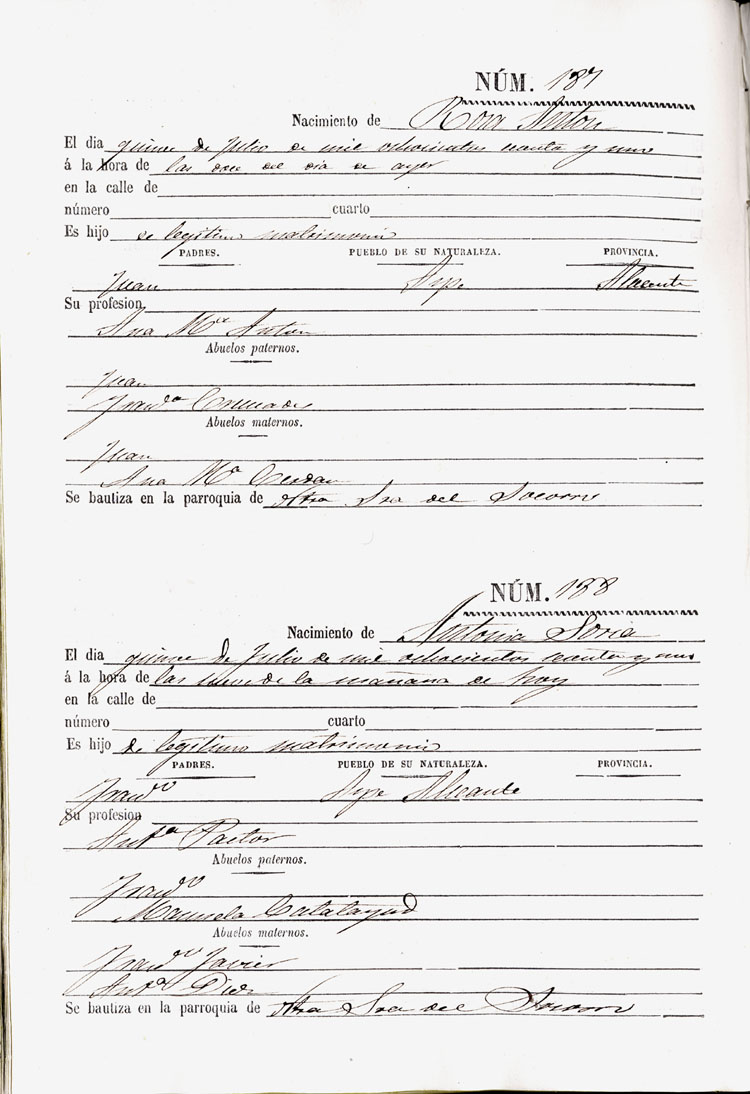 NÚM. 187
Nacimiento de Rosa Anton
El dia quince de Julio de mil ochocientos y uno
á la hora de las doce del dia de ayer
en la calle de
número cuarto
Es hijo de legitimo matrimonio
PADRES. PUEBLO DE SU NATURALEZA. PROVINCIA.
Juan Aspe Alicante
Su profesion
Ana Mª Anton
Abuelos paternos.
Juan
Francᵈᵃ Cremades
Abuelos maternos.
Juan
Ana Mª Cerdan
Se bautiza en la parroquia de Ntra Sra del Socorro
NÚM. 188
Nacimiento de Antonia Soria
El dia quince de Julio de mil ochocientos y uno
á la hora de las nueve de la mañana de hoy
en la calle de
número cuarto
Es hijo de legitimo matrimonio
PADRES. PUEBLO DE SU NATURALEZA. PROVINCIA.
Francᶜᵒ Aspe Alicante
Su profesion
Antª Pastor
Abuelos paternos.
Francᶜᵒ
Manuela Calatayud
Abuelos maternos.
Francᶜᵒ Javier
Antª Diez
Se bautiza en la parroquia de Ntra Sra del Socorro